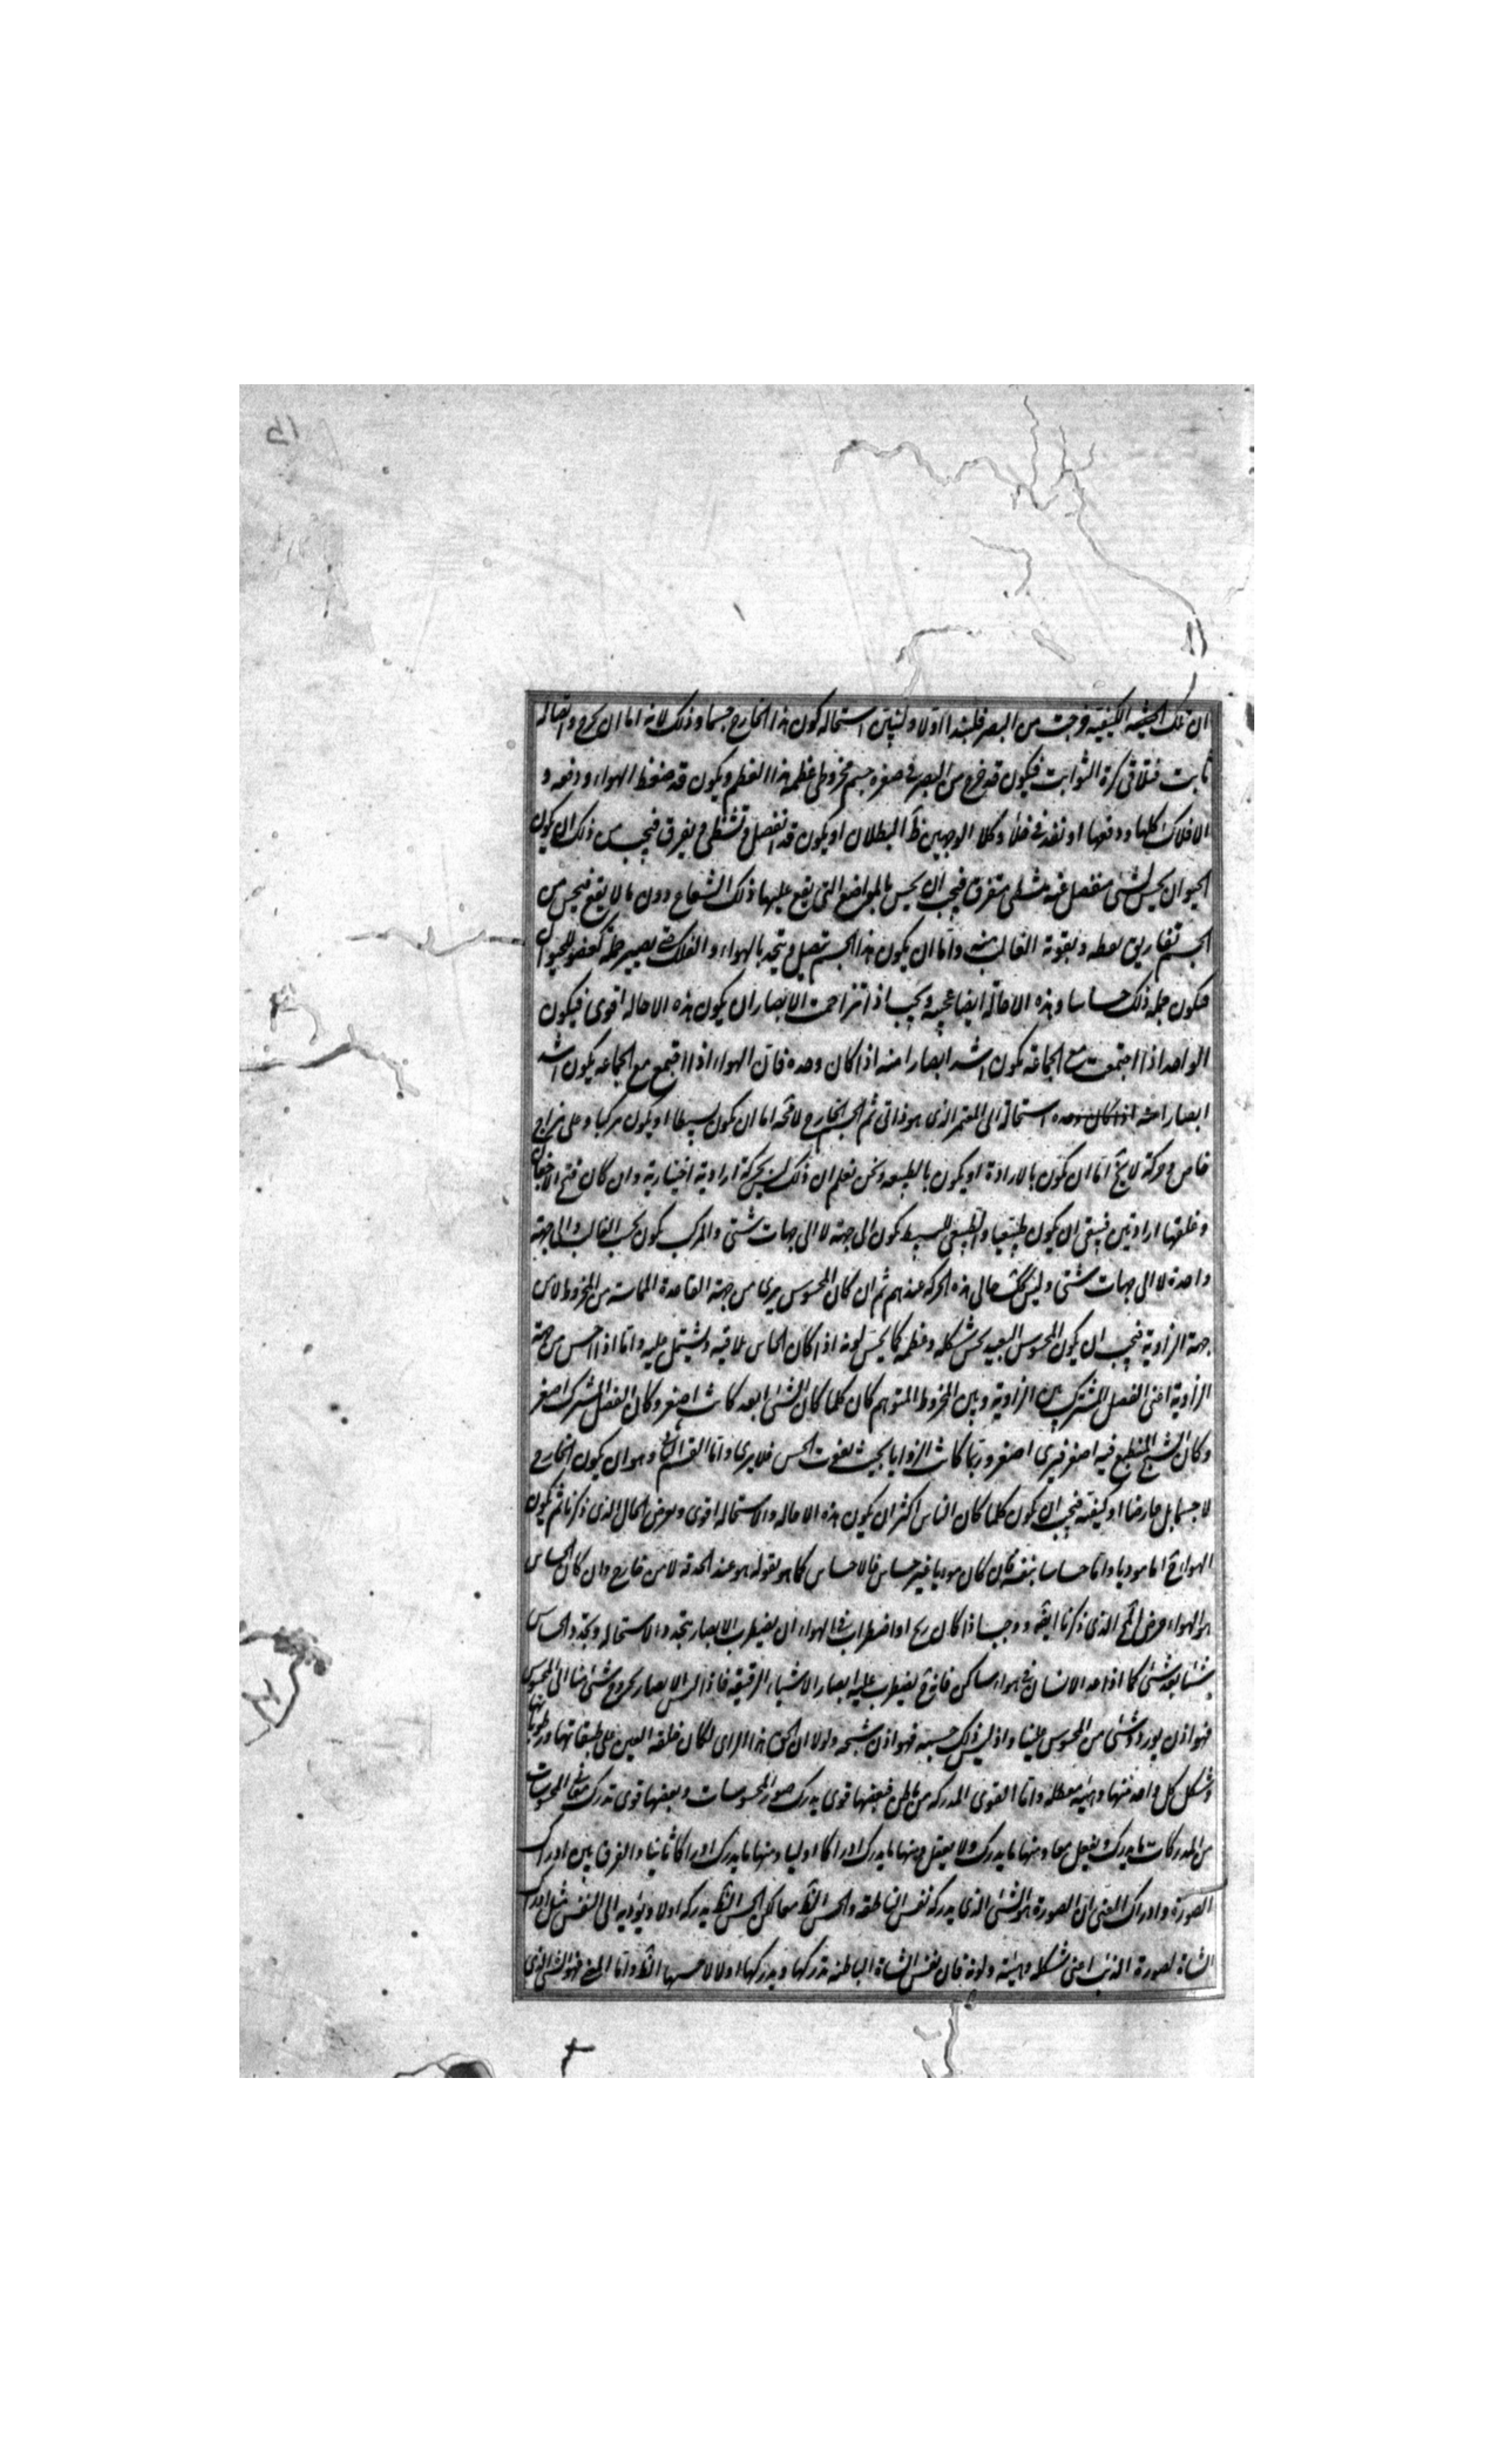 ان تلك الجثة الكيفية خرجت من البصر فلنبتدا اولا ولنبين استحالة كون هذا الخارج جسما وذلك لانه اما ان يخرج واتصاله
ثابت فتلاقى كرة الثوابت فيكون قد خرج من البصر فى صغره جسم مخروطى عظمه هذا العظم ويكون قد ضغط الهواء ودفعه و
الافلاك كلها ودفعها او نفذ فى خلأ وكلا الوجهين ظ البطلان او يكون قد انفصل وتشظى وتفرق فيجب من ذلك ان يكون
الحيوان يحس بشئ منفصل عنه متشظى متفرق فيجب ان يحس بالمواضع التى يقع عليها ذلك الشعاع دون ما لا يقع فيحس من
الجسم تفاريق نقطه ويفوته الغالب منه واما ان يكون هذا الجسم يتصل ويتحد بالهواء والفلك حتى يصير جملة كعضو للحيوان
فيكون جملة ذلك حساسا وهذه الاحالة ايضا عجيبة ويجب اذا تزاحمت الابصار ان يكون هذه الاحاله اقوى فيكون
الواحد اذا اجتمعت مع الجماعة يكون اشد ابصارا منه اذا كان وحده فان الهواء اذا اجتمع مع الجماعه يكون اشد
ابصارا منه اذا كان وحده استحالة الى المغير الذى هو ذاتى ثم الجسم الخارج لا محة اما ان يكون بسيطا او يكون مركبا وعلى مزاج
خاص وحركة لا يخ اما ان يكون بالارادة او يكون بالطبيعه ونحن نعلم ان ذلك ليس بحركة ارادية اختيارية وان كان فتح الاجفان
وغلقها اراديين فبقى ان يكون طبيعيا والطبيعى البسيط يكون الى جهة لا الى جهات شتى والمركب يكون بحسب الغالب والى جهة
واحدة لا الى جهات شتى وليس كك حال هذه الحركه عندهم ثم ان كان المحسوس يرى من جهة القاعدة المماسة من المخروط لا من
جهة الزاوية فيجب ان يكون المحسوس البعيد يحس شكله وعظمه كما يحس لونه اذا كان الحاس يلاقيه ويشتمل عليه واما اذا احس من جهة
الزاوية اعنى الفصل المشترك بين الزاوية وبين المخروط المتوهم كان كلما كان الشئ ابعد كانت اصغر وكان الفصل المشترك اصغر
وكان الشبح المنطبع فيه اصغر فيرى اصغر وربما كانت الزوايا بحيث يفوت الحس فلا يرى واما القسم الثانى وهو ان يكون الخارج
لا جسما بل عارضا او كيفية فيجب ان يكون كلما كان الناس اكثر ان يكون هذه الاحاله والاستحاله اقوى ويعرض الحال الذى ذكرنا ثم يكون
الهواء ح اما موديا واما حساسا بنفسه فان كان موديا غير حساس فالاحساس كما هو نقوله هو عند الحدقه لا من خارج وان كان الحساس
هو الهواء عرض المح الذى ذكرنا ايضه ووجب اذا كان ريح او اضطراب فى الهواء ان يضطرب الابصار بتجدد الاستحاله وتجدد الحساس
شيئا بعد شئ كما اذا عدا الانسان فى هواء ساكن فانه ح يضطرب عليه ابصار الاشياء الرقيقة فاذا ليس الابصار بخروج شئ منا الى المحسوس
فهو اذن بورود شئ من المحسوس علينا واذ ليس ذلك جسمه فهو اذن شبحه ولولا ان الحق هذا الراى لكان خلقه العين على طبقاتها ورطوباتها
وشكل كل واحد منها وهيئته معطله واما القوى المدركه من باطن فبعضها قوى يدرك صور المحسوسات وبعضها قوى تدرك معانى المحسوسات
من المدركات ما يدرك ويفعل معا ومنها ما يدرك ولا يفعل ومنها ما يدرك ادراكا اوليا ومنها ما يدرك ادراكا ثانيا والفرق بين ادراك
الصورة وادراك المعنى ان الصورة هو الشئ الذى يدركه نفس الناطقه والحس الظ معا لكن الحس الظ يدركه اولا ويؤديه الى النفس مثل ادراك
الشاة لصورة الذئب اعنى شكله وهيئته ولونه فان نفس الشاة الباطنه تدركها ويدركها اولا لا حسها الظ واما المعنى فهو الشئ الذى